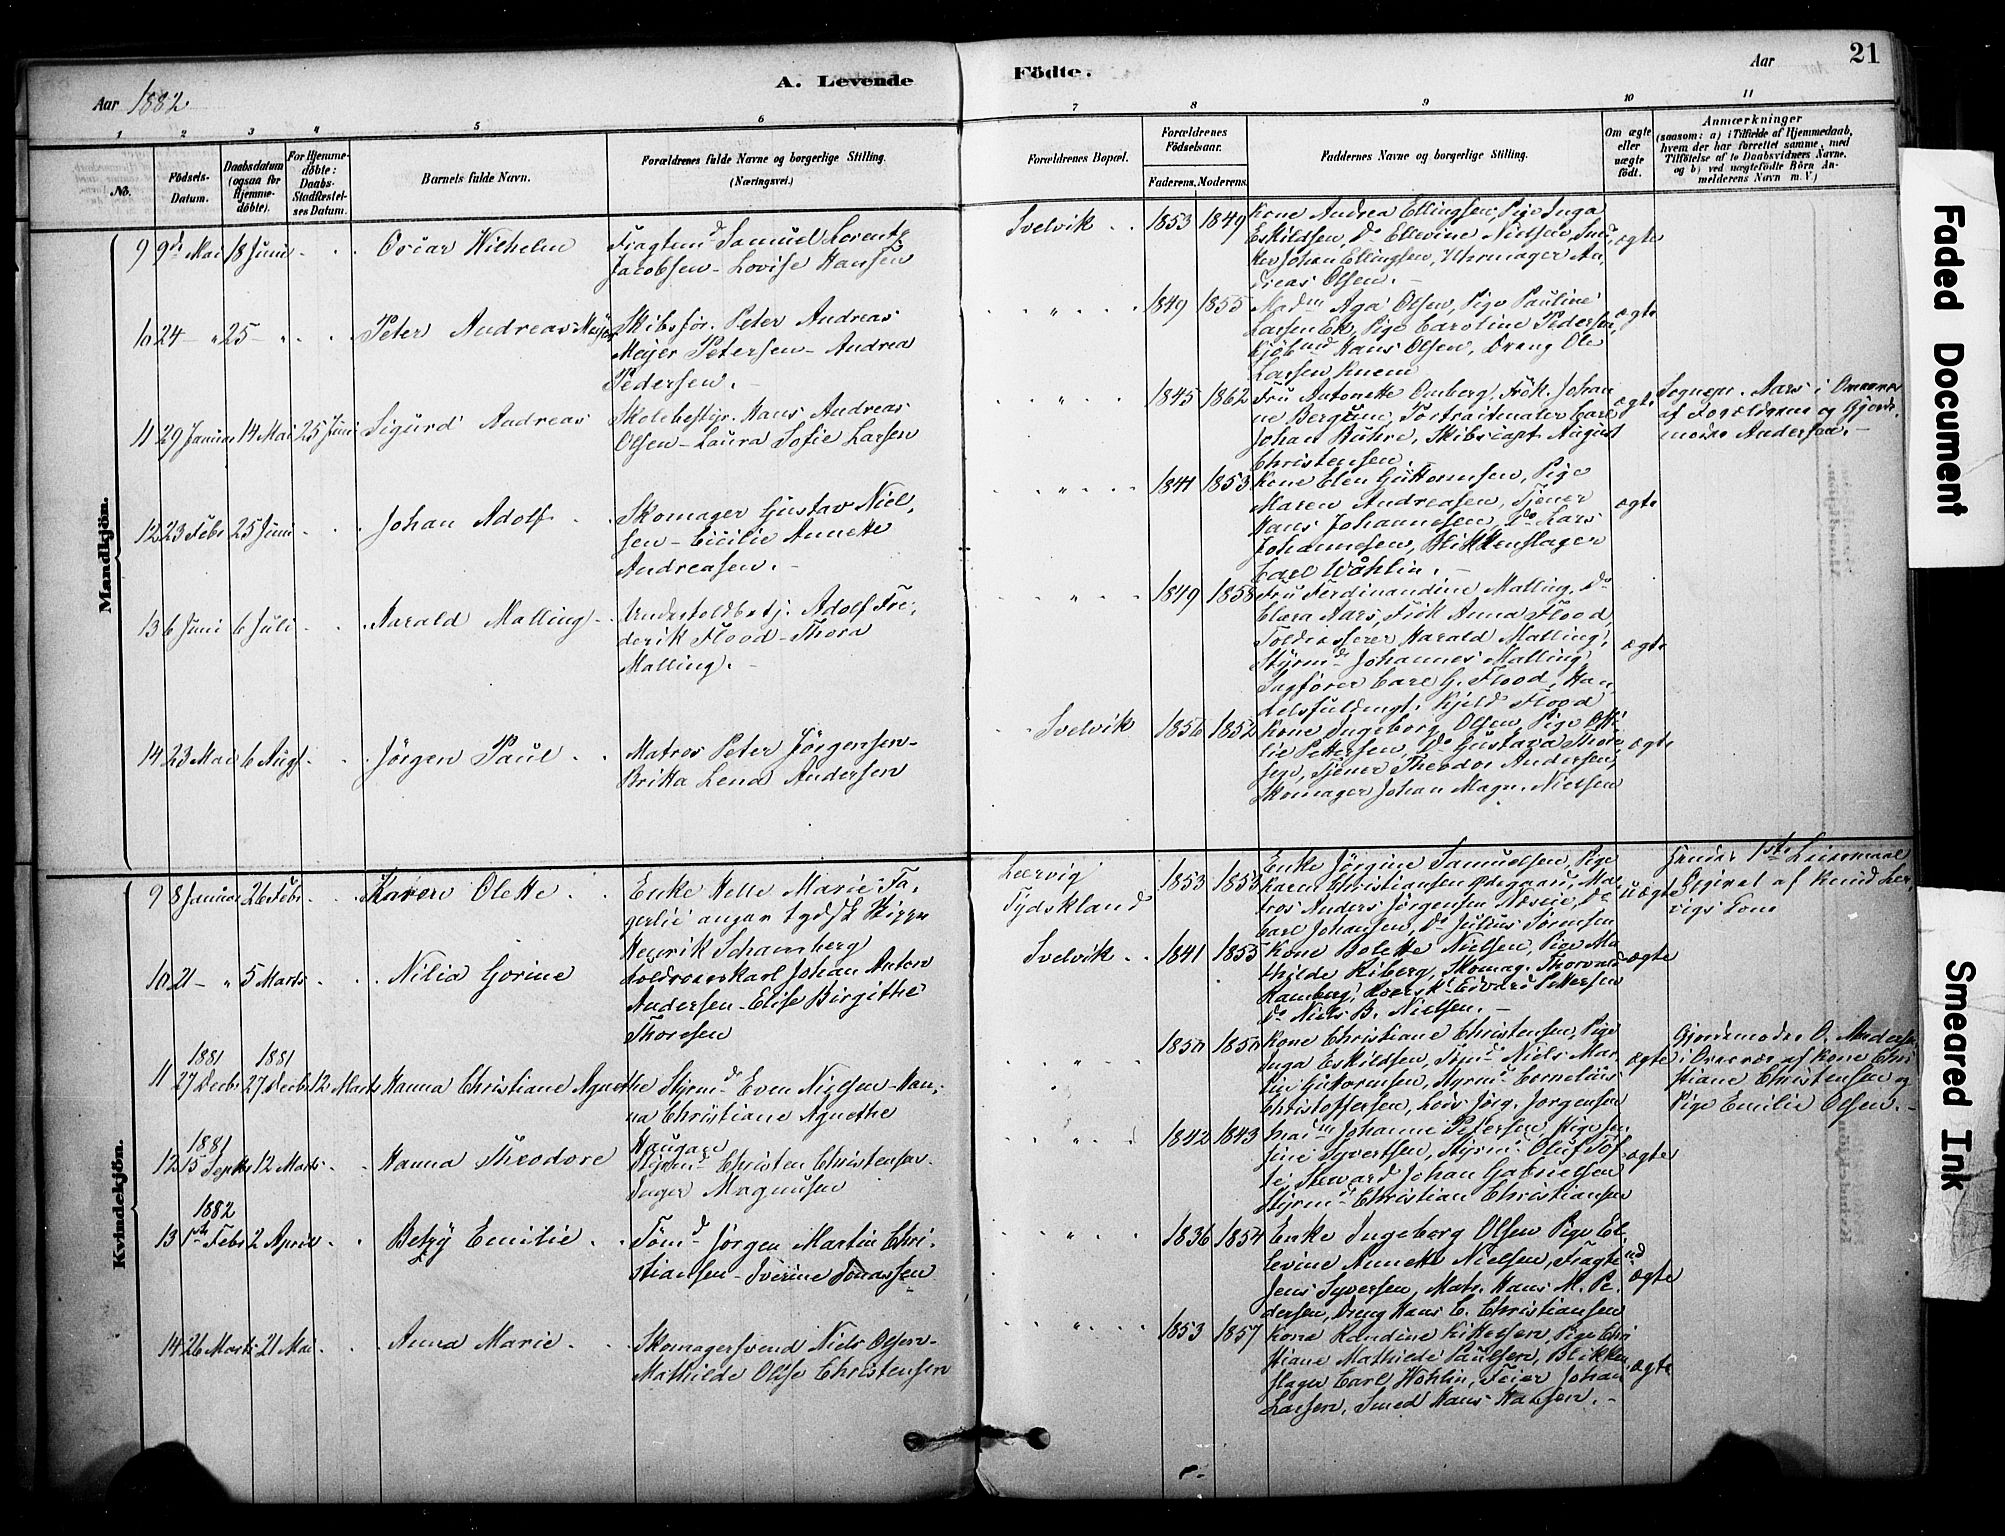 A. Levende
Födte.
Aar
21
Aar 1882.
1 2 3 4 5 6 7 8 9 10 11
No.
Födsels-
Datum.
Daabsdatum
(ogsaa for
Hjemme-
döbte).
For Hjemme-
döbte:
Daabs-
Stadfæstel-
ses Datum.
Barnets fulde Navn.
Forældrenes fulde Navne og borgerlige Stilling.
(Næringsvei.)
Forældrenes Bopæl.
Forældrenes
Födselsaar.
Faderens. Moderens.
Faddernes Navne og borgerlige Stilling.
Om ægte
eller
uægte
født.
Anmærkninger
(saasom: a) i Tilfælde af Hjemmedaab,
hvem der har forrettet samme, med
Tilföielse af to Daabsvidners Navne.
og b) ved uægtefödte Börn An-
melderens Navn m. V.)
Mandkjön.
9 9de Mai 18 Juni Oscar Wilhelm
Fragtmd Samuel Lorentz
Jacobsen - Lovise Hansen
Svelvik 1853 1849
Kone Andrea Ellingsen, Pige Inga
Eskildsen, Do Ellevine Nielsen, Sned
ker Johan Ellingsen, Uhrmager An,
dreas Olsen.
ægte
10 24 - " 25 - " Peter Andreas Meyer
Skibsför. Peter Andreas
Meyer Petersen - Andrea
Pedersen.
" 1849 1855
Madm Aga Olsen, Pige Pauline
Larsen Ek, Pige Caroline Pedersen,
Kjöbmd Hans Olsen, Dreng Ole
Larsen
ægte
11 29 Januar 14 Mai 25 Juni Sigurd Andreas
Skolebestyr. Hans Andreas
Olsen - Laura Sofie Larsen
" 1845 1862
Fru Antonette Omberg, Frök. Johan
ne Bergum, Portraitmaler Carl
Johan Buhre, Skibscapt. August
Christensen
ægte
Sognepr. Aars i Overvær
af Forældrene og Gjorde-
moder Andersen.
12 23 Febr 25 Juni Johan Adolf
Skomager Gustav Niel,
sen - Cicilie Annette
Andreasen.
" 1841 1853
Kone Elen Guttormsen, Pige
Maren Andreasen, Tjener
Hans Johannesen, Do Lars
Johannesen, Blikkenslager
Carl Wåhlin.
ægte
13 6 Juni 6 Juli Harald Malling
Undertoldbetj. Adolf Fre,
derik Flood - Thora
Malling.
" 1849 1858
Fru Ferdinandine Malling, Do
Clara Aars, Frök Anna Flood,
Toldkasserer Harald Malling,
Styrmd Johannes Malling,
Sagförer Carl G. Flood, Han
delsfuldmgt. Kjeld Flood
ægte
14 23 Mai 6 Augst Jörgen Paul
Matros Peter Jörgensen -
Britta Lena Andersen
Svelvik 1856 1852
Kone Ingeborg Olsen, Pige Otti
lie Pettersen, Do Gustava Thore
sen, Tjener Theodor Andersen,
Skomager Johan Magn. Nielsen
ægte
Kvindekjön.
9 8 Januar 26 Febr. Karen Olette
Enke Helle Marie Fa-
gerlie angav tydsk Skipper
Henrik Schamberg
Leervig
Tydskland 1853 1853
Enke Jörgine Samuelsen, Pige
Karen Christiansen Ødegaard, Ma-
tros Anders Jörgensen Næsøe, Do
Carl Johansen, Do Julius Sörensen
uægte
Hendes 1ste Leiermaal
Opgivet af Knud Ler-
vigs Tom
10 21 - " 5 Marts Nilia Gorine
Toldroerskarl Johan Anton
Andersen - Elise Birgithe
Thoresen
Svelvik 1841 1855
Kone Bolette Nielsen, Pige Ma
thilde Riberg, Skomag. Thorvald
Ramberg, Roersk. Edvard Pettersen
Do Niels B. Nielsen.
ægte
1881 1881
11 27 Decbr 27 Decbr 12 Marts Hanna Christiane Agnethe
Styrmd Even Nielsen - Han,
na Christiane Agnethe
Haugan
" 1850 1850
Kone Christiane Christensen, Pige
Inga Eskildsen, Styrmd Niels Mar-
tin Gutormsen, Styrmd Cornelius
Christoffersen, Lods Jörg. Jorgensen
ægte
Gjordemoder O. Andersen
i Overvær af Kone Chri
stiane Christensen og
Pige Emilie Olsen.
1881
12 15 Septbr 12 Marts Hanna Theodore
Styrmd Christen Christensen.
Inger Magnusen
" 1842 1843
Madm Johanne Pedersen, Pige Jen
sine Syvertsen, Styrmd Oluf Tof
te, Steward Johan Gabrielsen
Styrmd Christian Christiansen
ægte
1882
13 1ste Febr 2 April Betzy Emilie
Tömd Jörgen Martin Chri-
stiansen - Iverine Jonassen
" 1836 1854
Enke Ingeborg Olsen Pige El-
levine Annette Nielsen, Fragtemd
Jens Syversen, Matr. Hans M. Pe-
dersen, Dreng Hans C. Christiansen
ægte
14 26 Marts 21 Mai Anna Marie
Skomagersvend Niels Olsen -
Mathilde Olise Christensen
" 1853 1857
Kone Randine Kittelsen, Pige Chri
stiane Mathilde Paulsen, Blikken
slager Carl Wohlin, Feier Johan
Larsen, Smed Hans Hansen.
ægte
Faded Document
Smeared Ink